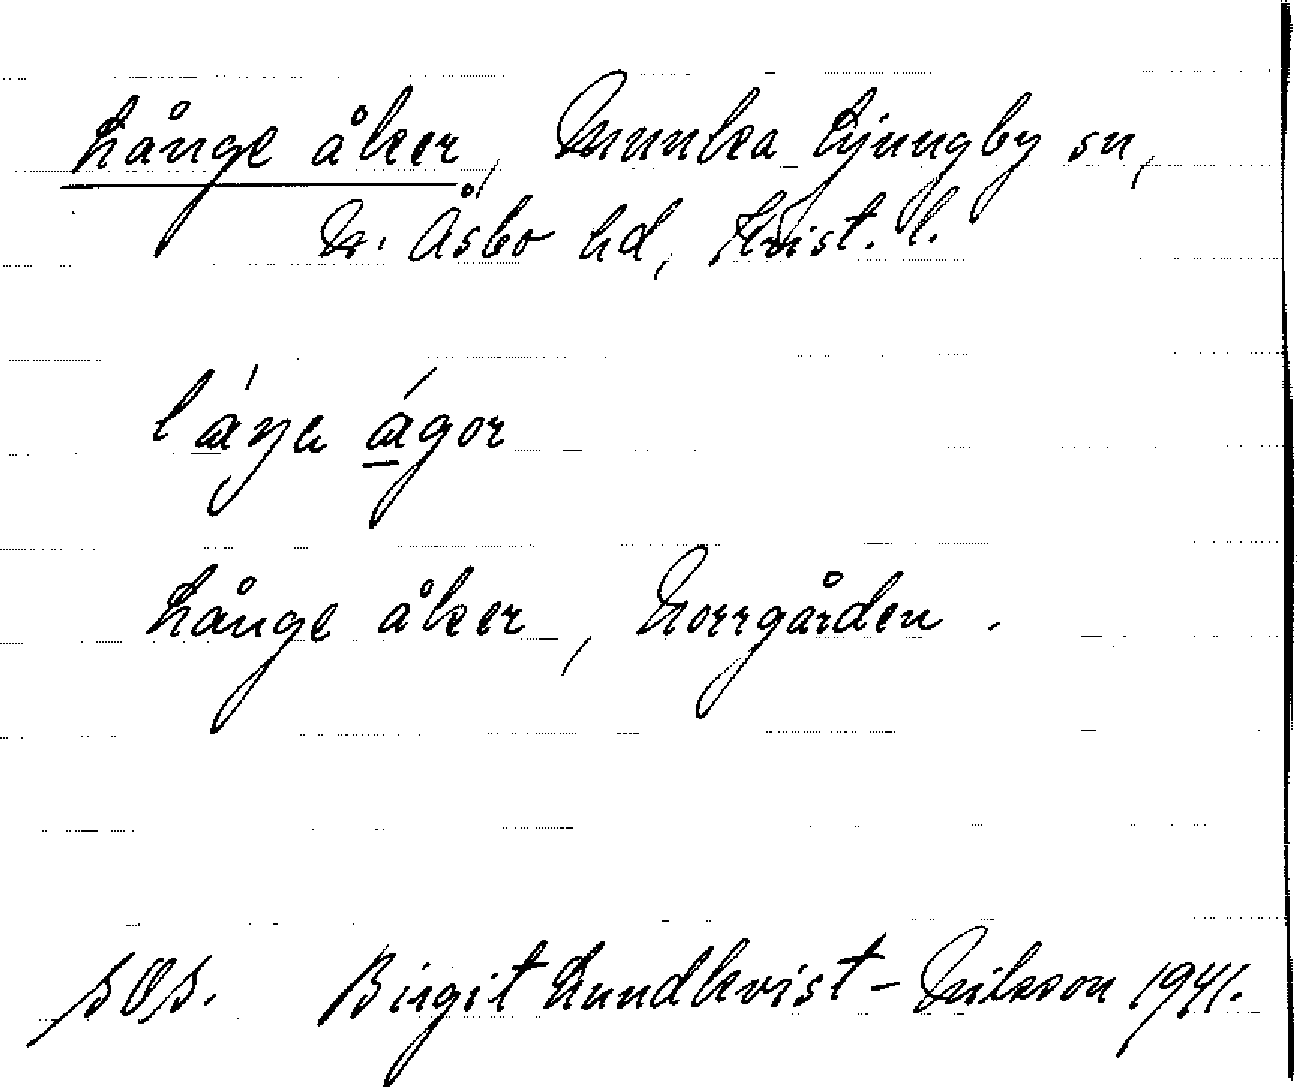 Långe åker, Munka Ljungby sn,
N. Åsbo hd, Krist. l.
láŋa ágor
Långe åker, Norrgården.
SOS. Birgit Lundkvist-Nilsson 1941.